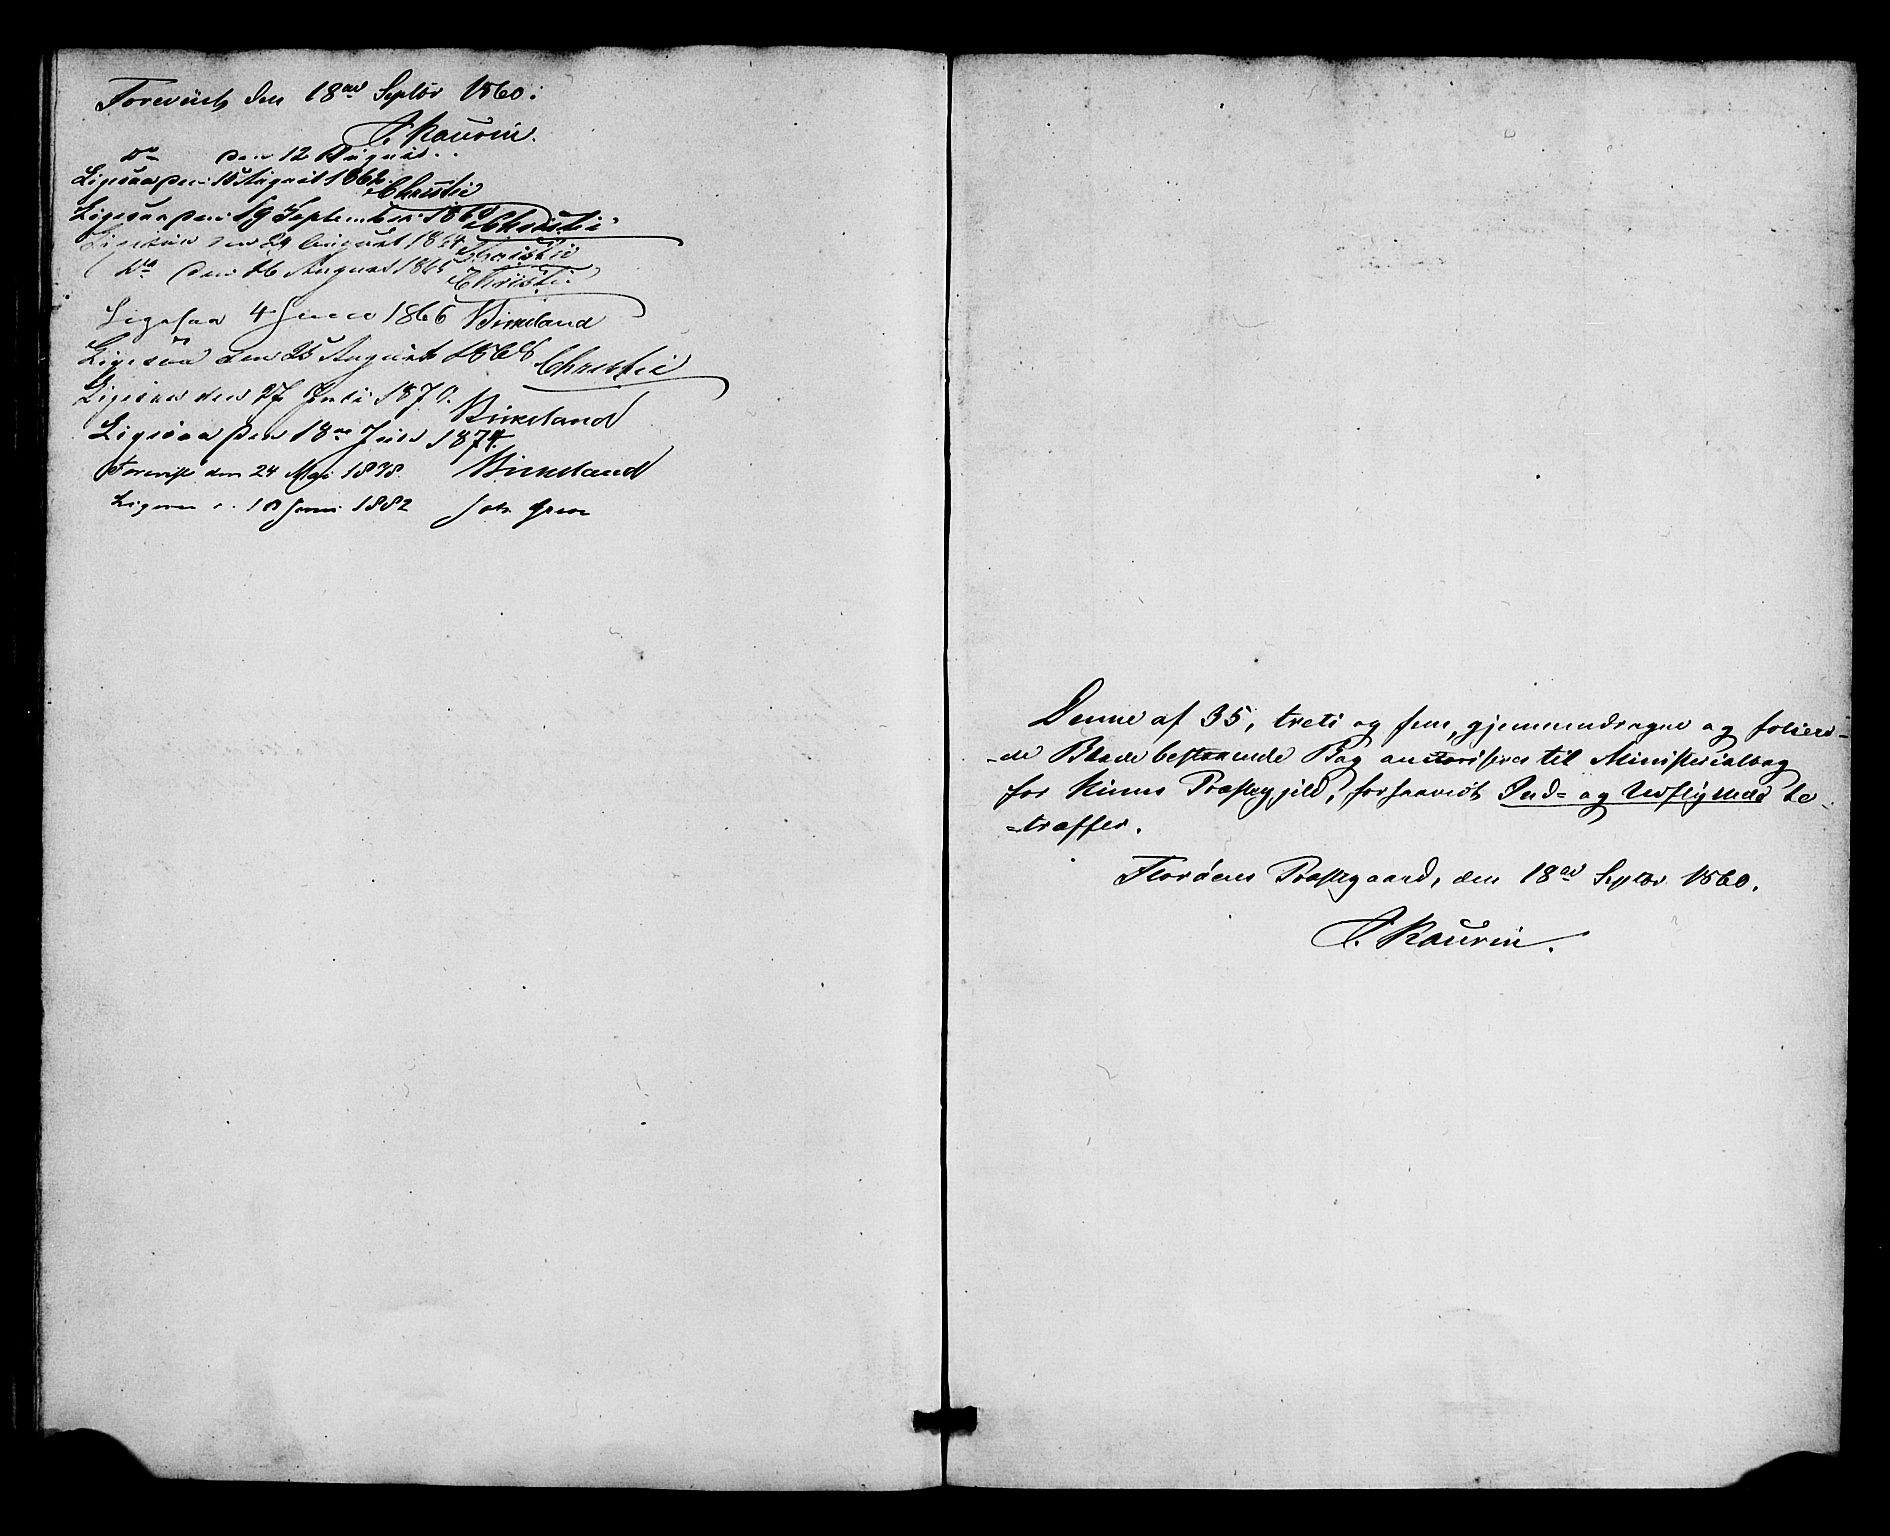 Forevist den 18de Septbr 1860.
P. Kaurin.
Do den 12 August
Ligesaa den 15 August 1862 Christie
Ligesaa den 19 September 1863 Christie
Ligesaa den 29 August 1864 Christie
Do den 16 August 1865 Christie
Ligesaa 4 Juni 1866 Birkeland
Ligesaa den 25 August 1868 Christie
Ligesaa den 27 Juli 1870. Birkeland
Ligesaa den 18de Juli 1874.
Birkeland
Forevist den 24 Mai 1878
Ligesaa d. 10 Juni 1882 Joh. Greve
Denne af 35, treti og fem, gjennemdragne og foliere-
-de Blade bestaaende Bog autoriseres til Ministerialbog
for Kinns Præstegjeld, forsaavidt Ind- og Udflyttede be-
-træffer.
Florøens Præstegaard, den 18de Septbr 1860.
P. Kaurin.